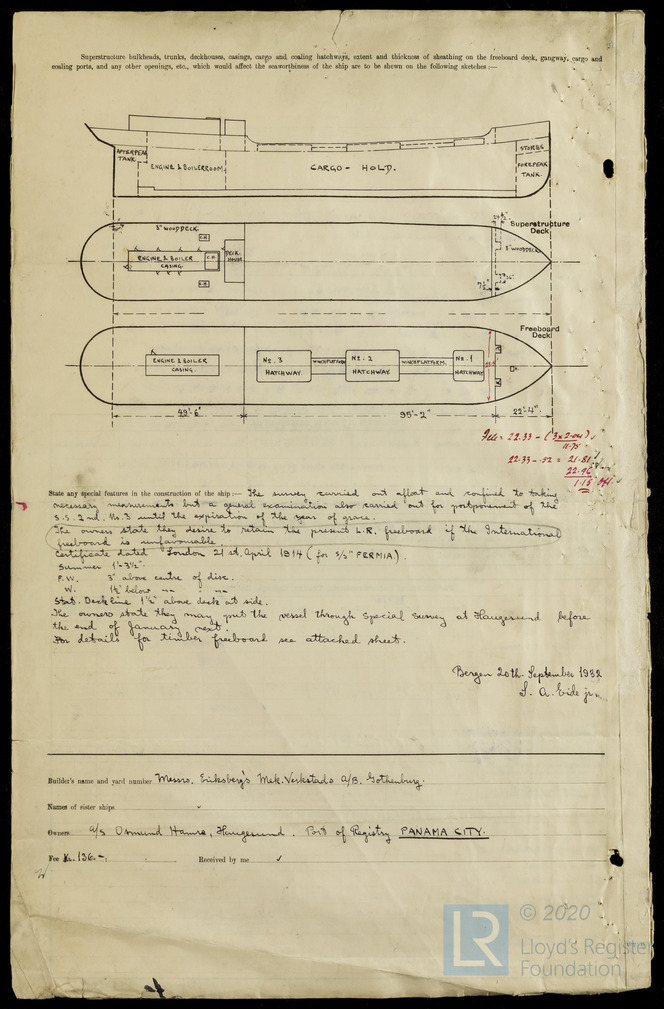 Superstructure bulkheads, trunks, deckhouses, casings, cargo and coaling hatchways, extent and thickness of sheathing on the freeboard deck, gangway, cargo and
coaling ports, and any other openings, etc., which would affect the seaworthiness of the ship are to be shewn on the following sketches :—
AFTERPEAK TANK.
ENGINE & BOILERROOM.
CARGO - HOLD.
STORES
FOREPEAK TANK.
3" WOOD DECK.
Superstructure Deck.
3" WOOD DECK.
C.H.
DECK-HOUSE
ENGINE & BOILER CASING.
C.H.
C.H.
7½"
Freeboard Deck
ENGINE & BOILER CASING.
No. 3 HATCHWAY.
WINCHPLATFORM
No. 2 HATCHWAY.
WINCHPLATFORM.
No. 1 HATCHWAY.
49'-6"
95'-2"
22'-4"
= 22.33 - (3 x 2.04)
11.75
22.33 - .52 = 21.81
22.96
1.15
State any special features in the construction of the ship :— The survey carried out afloat and confined to taking
necessary measurements but a general examination also carried out for postponement of the
S.S. 2nd. No. 3 until the expiration of the year of grace.
The owners state they desire to retain the present L.R. freeboard if the International
freeboard is unfavourable
Certificate dated London 21st. April 1914 (for S/S "FERMIA).
Summer 1'-3½".
F.W. 3" above centre of disc.
W. 1½" below
Stat. Deckline 1½" above deck at side.
The owners state they may put the vessel through Special Survey at Haugesund before
the end of January next.
For details for timber freeboard see attached sheet.
Bergen 20th. September 1932
S. A. Eide jr.
Builder's name and yard number Messrs. Eriksberg's Mek. Verkstads A/B. Gothenburg.
Names of sister ships
Owners A/S Osmund Hamre, Haugesund. Port of Registry PANAMA CITY.
Fee Kr. 136.-. Received by me
LR
© 2020
Lloyd's Register
Foundation